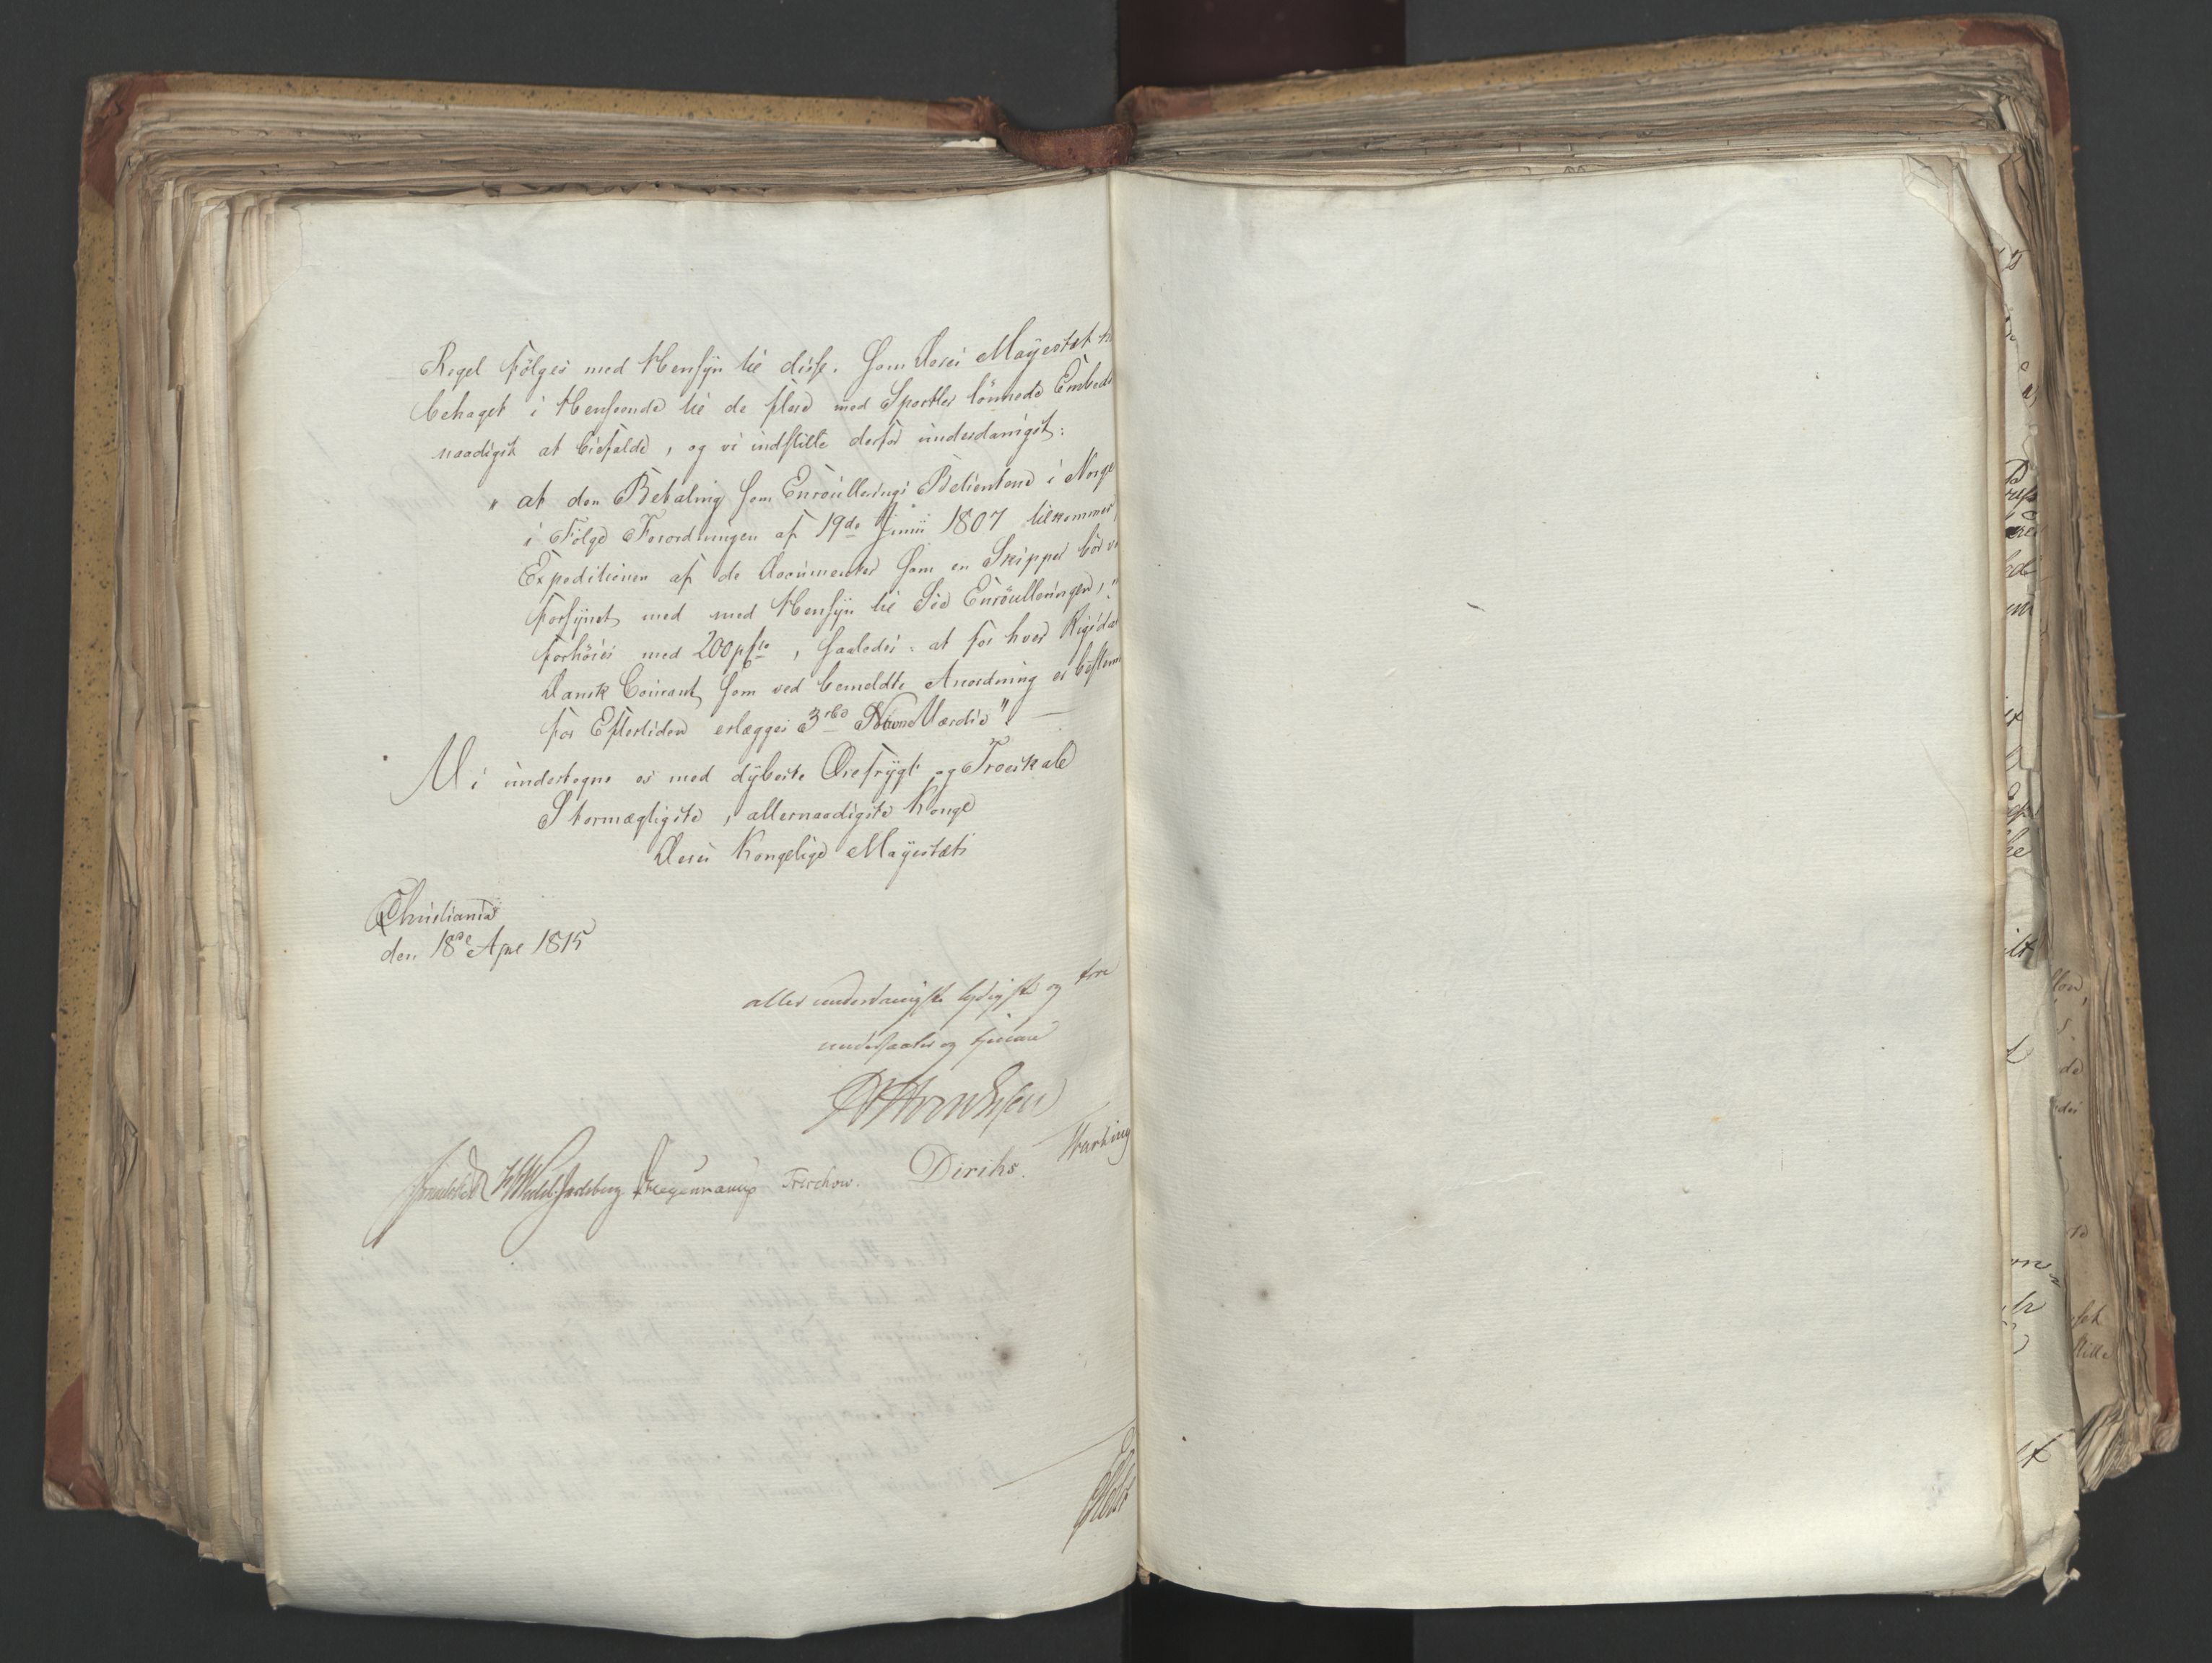 Regel følges med Hensyn til disse. som Deres Mayestæt
behaget i Henseende til de flere med Sportler lönnede Embeds
naadigst at bifalde, og vi indstille derfor underdanigst:
" at den Betaling som Enroullerings Betientene i Norge
i Følge Forordningen af 19de Junii 1807 tilkommer
Expeditionen af de Documenter som en Skipper bör
forsynet med med Hensyn til Söe Enroulleringen,
forhöies med 200 pCto, saaledes: at for hver Rigsdal
Dansk Courant som ved bemeldte Anordning er bestem
for Eftertiden erlægges 3 rbd Navne Værdie".
Vi undertegne os med dybeste Ærefrygt og Troeskab
Stormægtigste, allernaadigste Konge
Deres Kongelige Mayestæts
Christiania
den 18de Apr 1815
aller underdanigste lydigste og troe
undersaatter og tjenere
Diriks.
Fredrik HWedel Jarlsberg Hegermann Treschow.